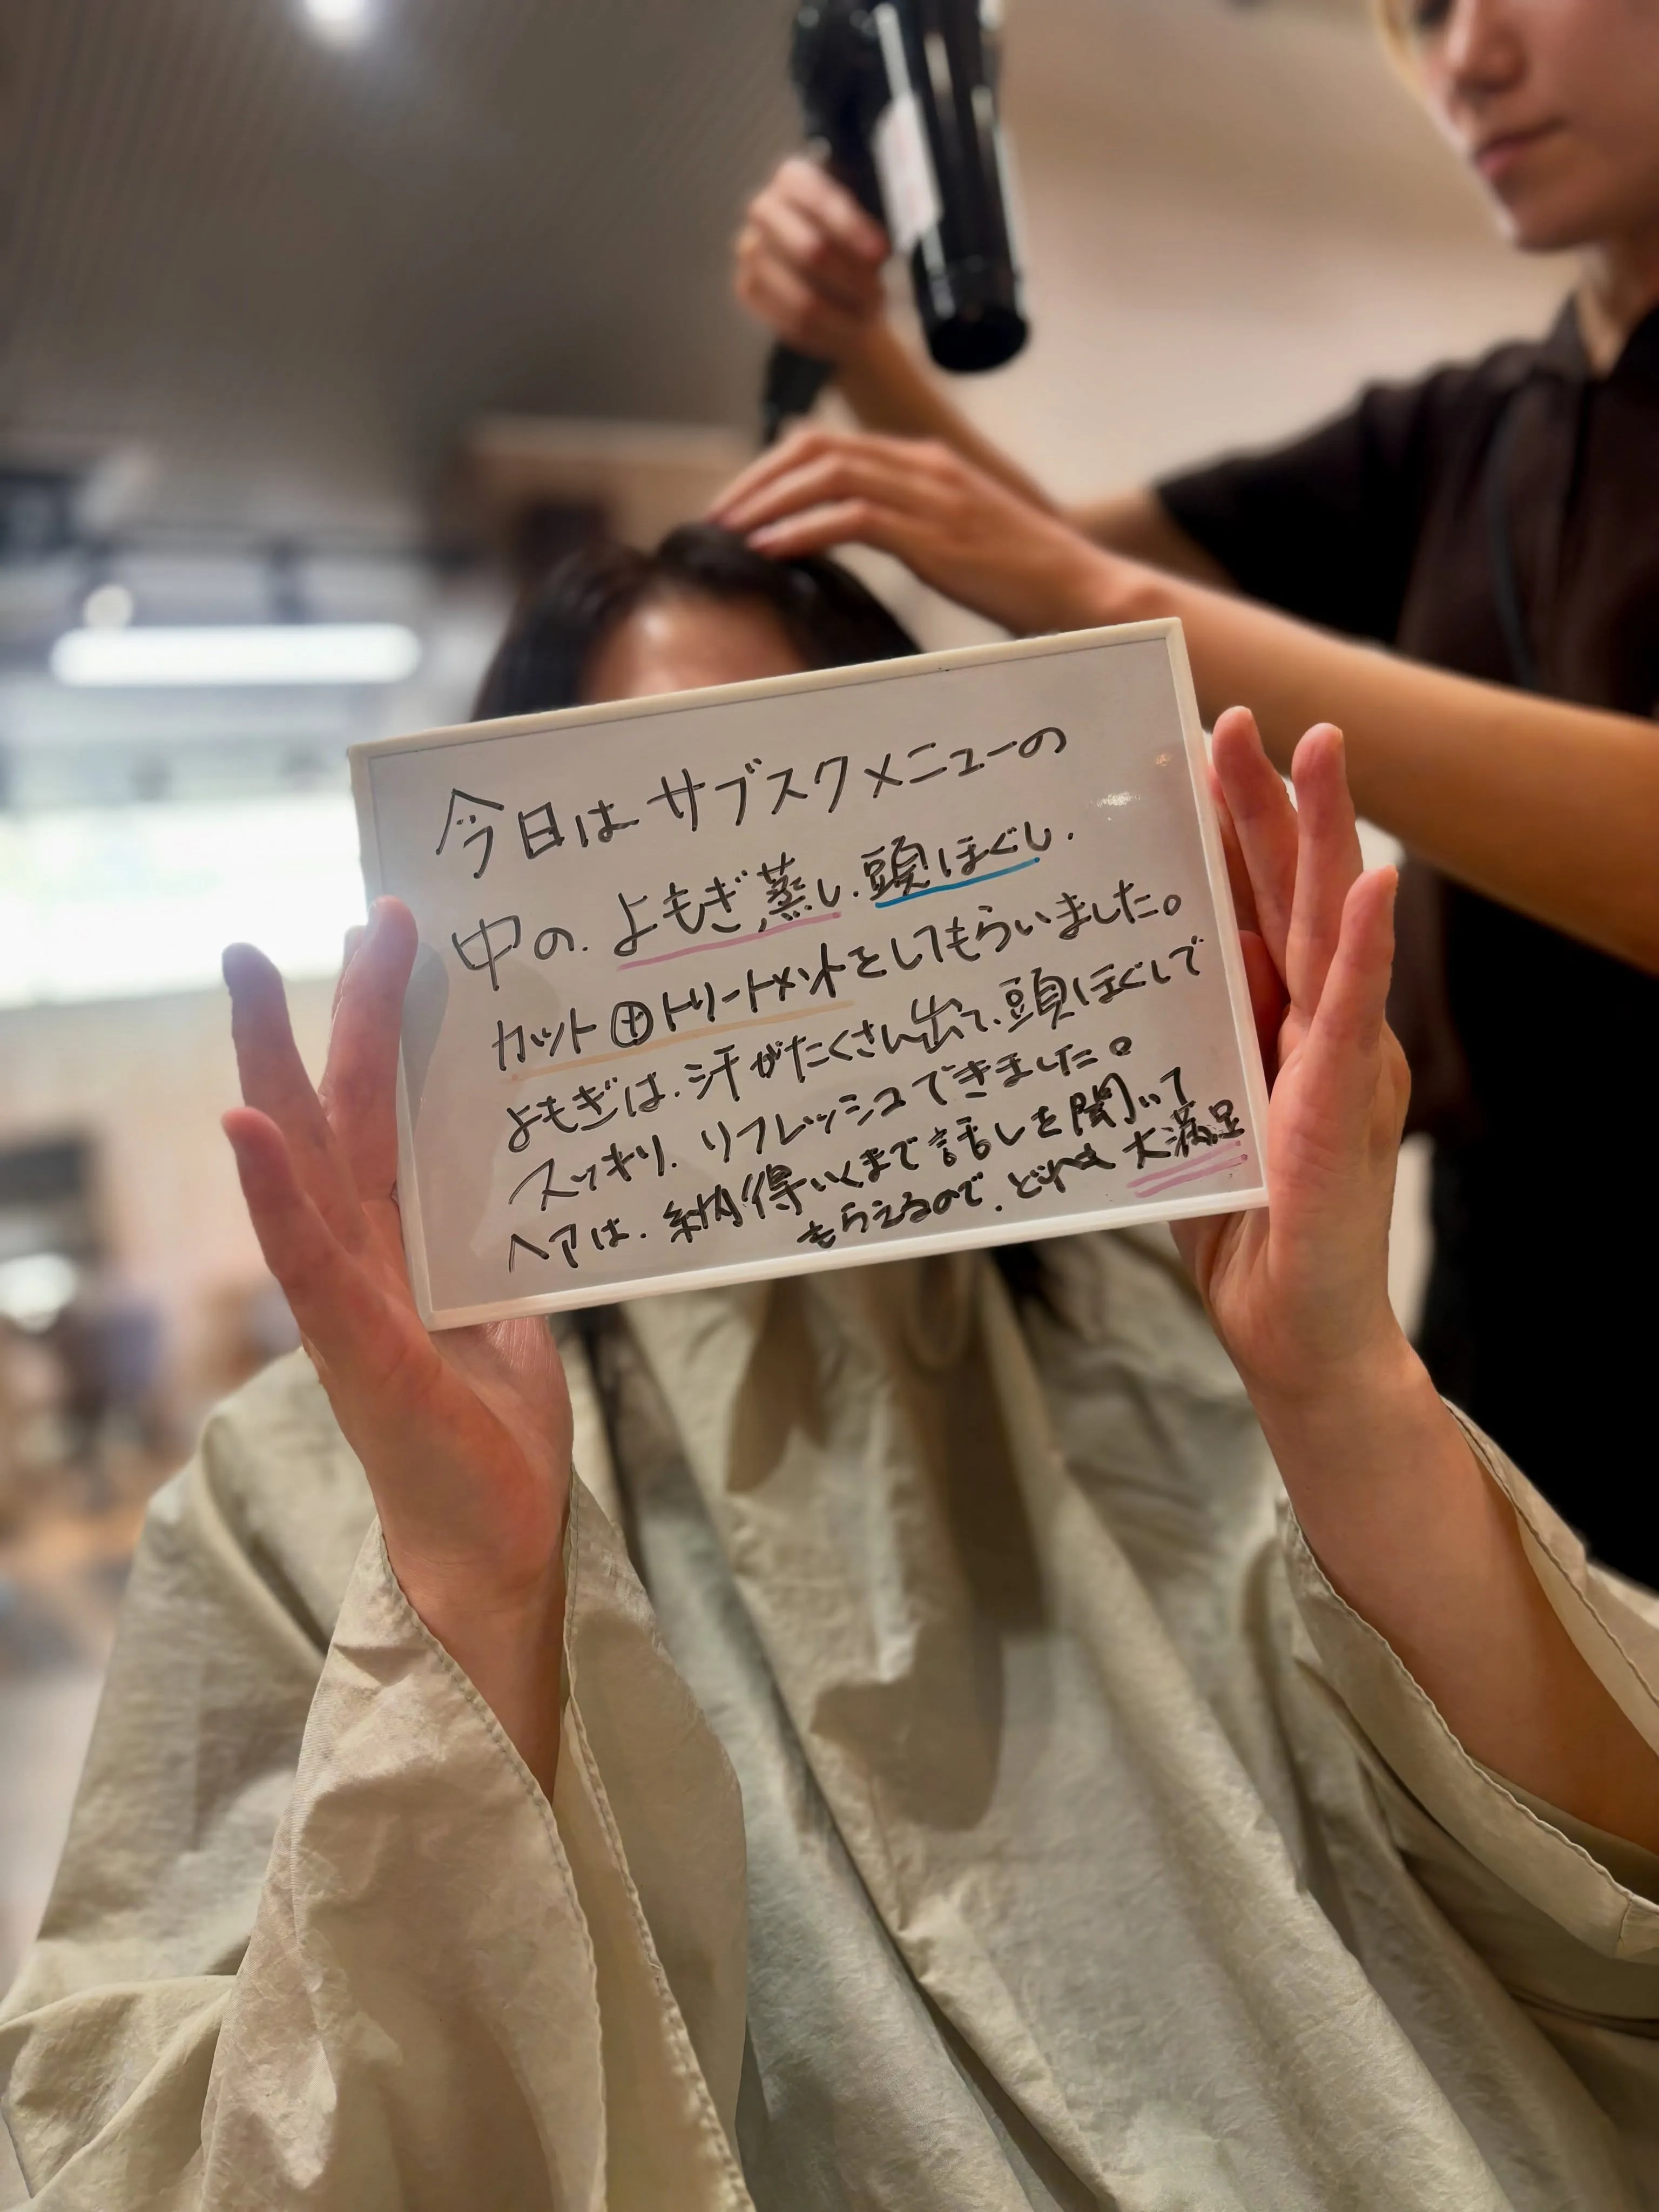 今日はサブスクメニューの
中の、よもぎ蒸し、頭ほぐし、
カット⊕トリートメントをしてもらいました。
よもぎは、汗がたくさん出て、頭ほぐしで
スッキリ、リフレッシュできました。
ヘアは、納得いくまで話しを聞いて
もらえるので、どれも大満足